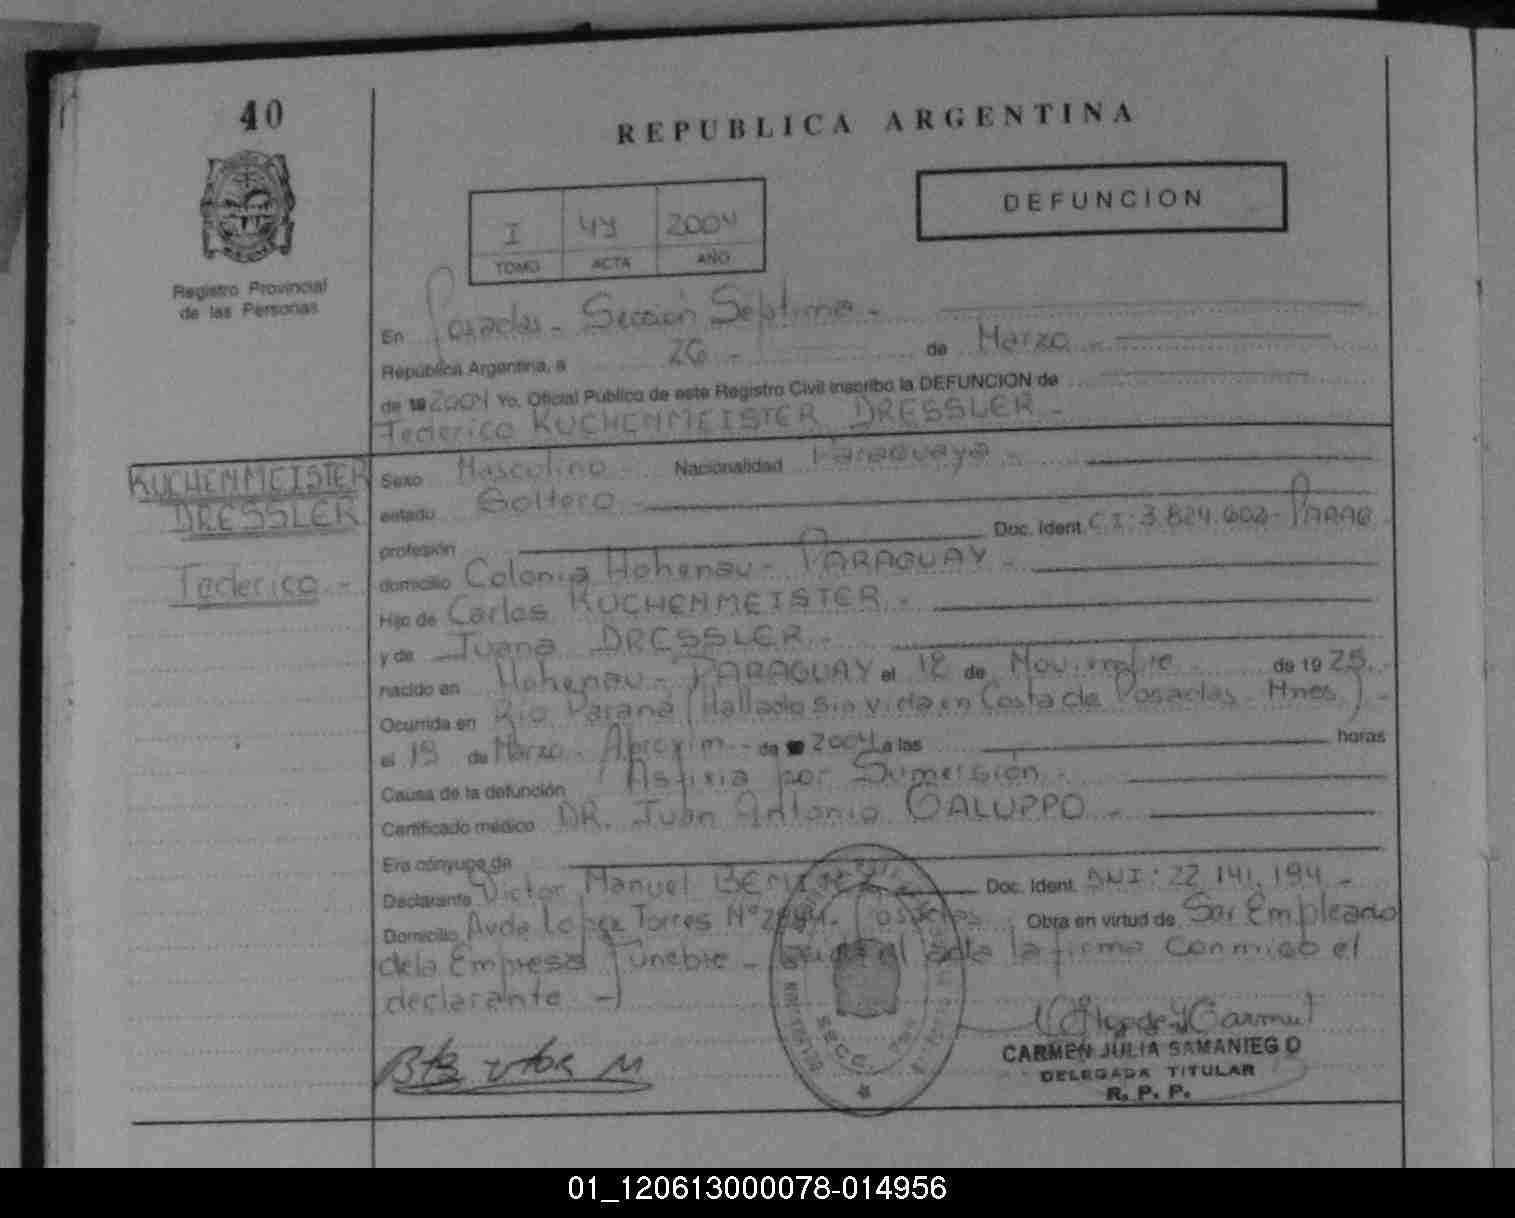 40
REPUBLICA ARGENTINA
DEFUNCION
I 44 2004
TOMO ACTA AÑO
Registro Provincial
de las Personas
En Posadas - Sección Septima -
República Argentina, a 26 - de Marzo -
de 19 2004 Yo, Oficial Público de este Registro Civil inscribo la DEFUNCION de
Federico KUCHENMEISTER DRESSLER -
KUCHENMEISTER
DRESSLER
Federico -
Sexo Masculino - Nacionalidad Paraguaya -
estado Soltero -
profesión Doc. Ident. C.I: 3.824.602 - PARAG
domicilio Colonia Hohenau - PARAGUAY -
Hijo de Carlos KUCHENMEISTER -
y de Juana DRESSLER -
nacido en Hohenau - PARAGUAY el 12 de Noviembre de 19 25. -
Ocurrida en Río Paraná (Hallado sin vida en Costa de Posadas - Mnes) -
el 19 de Marzo - Aproxim - de 2004 a las horas
Causa de la defunción Asfixia por Sumersión -
Certificado médico DR. Juan Antonio GALUPPO -
Era cónyuge de
Declarante Victor Manuel Doc. Ident. DNI: 22.141.194 -
Domicilio Avda Lopez Torres Nº Posadas Obra en virtud de Ser Empleado
de la Empresa Funebre - el acta la firma conmigo el
declarante -)
CARMEN JULIA SAMANIEGO
DELEGADA TITULAR
R. P. P.
01_120613000078-014956